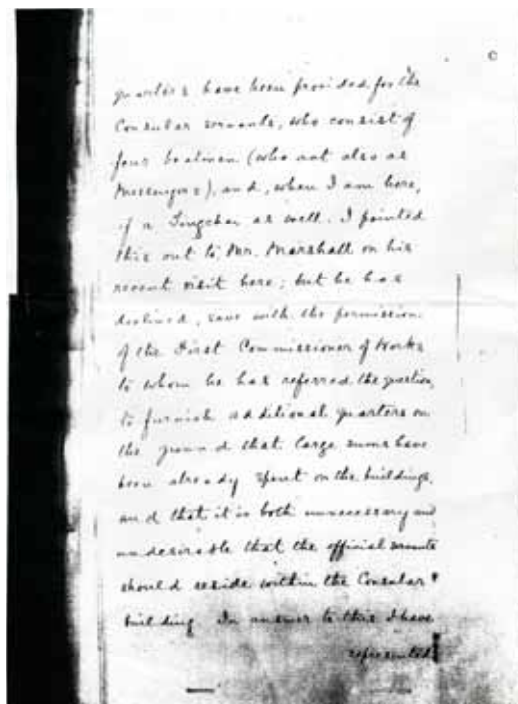 quarters have been provided for the
Consular servants, who consist of
four boatmen (who act also as
Messengers), and, when I am here,
of a Tingchai as well. I pointed
this out to Mr. Marshall on his
recent visit here; but he has
declined, save with the permission
of the First Commissioner of Works
to whom he has referred the question,
to furnish additional quarters on
the ground that large sums have
been already spent on the buildings,
and that it is both unnecessary and
undesirable that the official servants
should reside within the Consular
building. In answer to this I have
represented